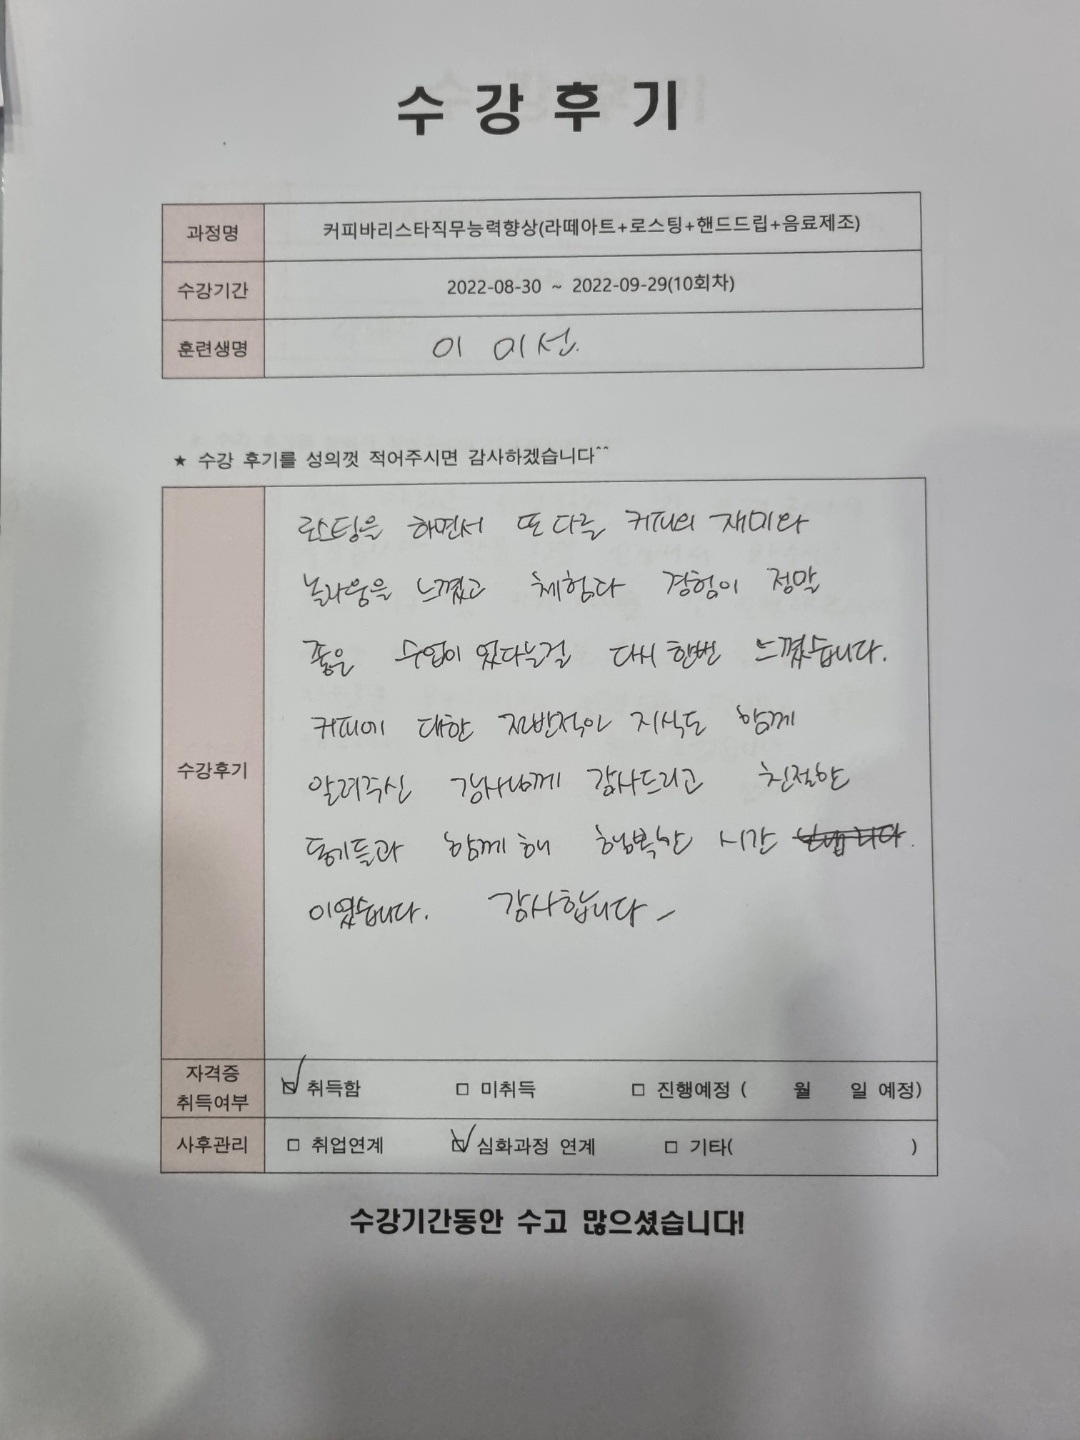 수강후기
과정명 커피바리스타직무능력향상(라떼아트+로스팅+핸드드립+음료제조)
수강기간 2022-08-30 ~ 2022-09-29(10회차)
훈련생명 이 미선.
★ 수강 후기를 성의껏 적어주시면 감사하겠습니다^^
수강후기
로스팅을 하면서 또 다른 커피의 재미와
놀라움을 느꼈고 체험다 경험이 정말
좋은 수업이 있다는걸 다시 한번 느꼈습니다.
커피에 대한 전반적인 지식도 함께
알려주신 강사님께 감사드리고 친절한
동기들과 함께 해 행복한 시간
이였습니다. 감사합니다
자격증 취득여부 ☑ 취득함 □ 미취득 □ 진행예정 ( 월 일 예정)
사후관리 □ 취업연계 ☑ 심화과정 연계 □ 기타( )
수강기간동안 수고 많으셨습니다!